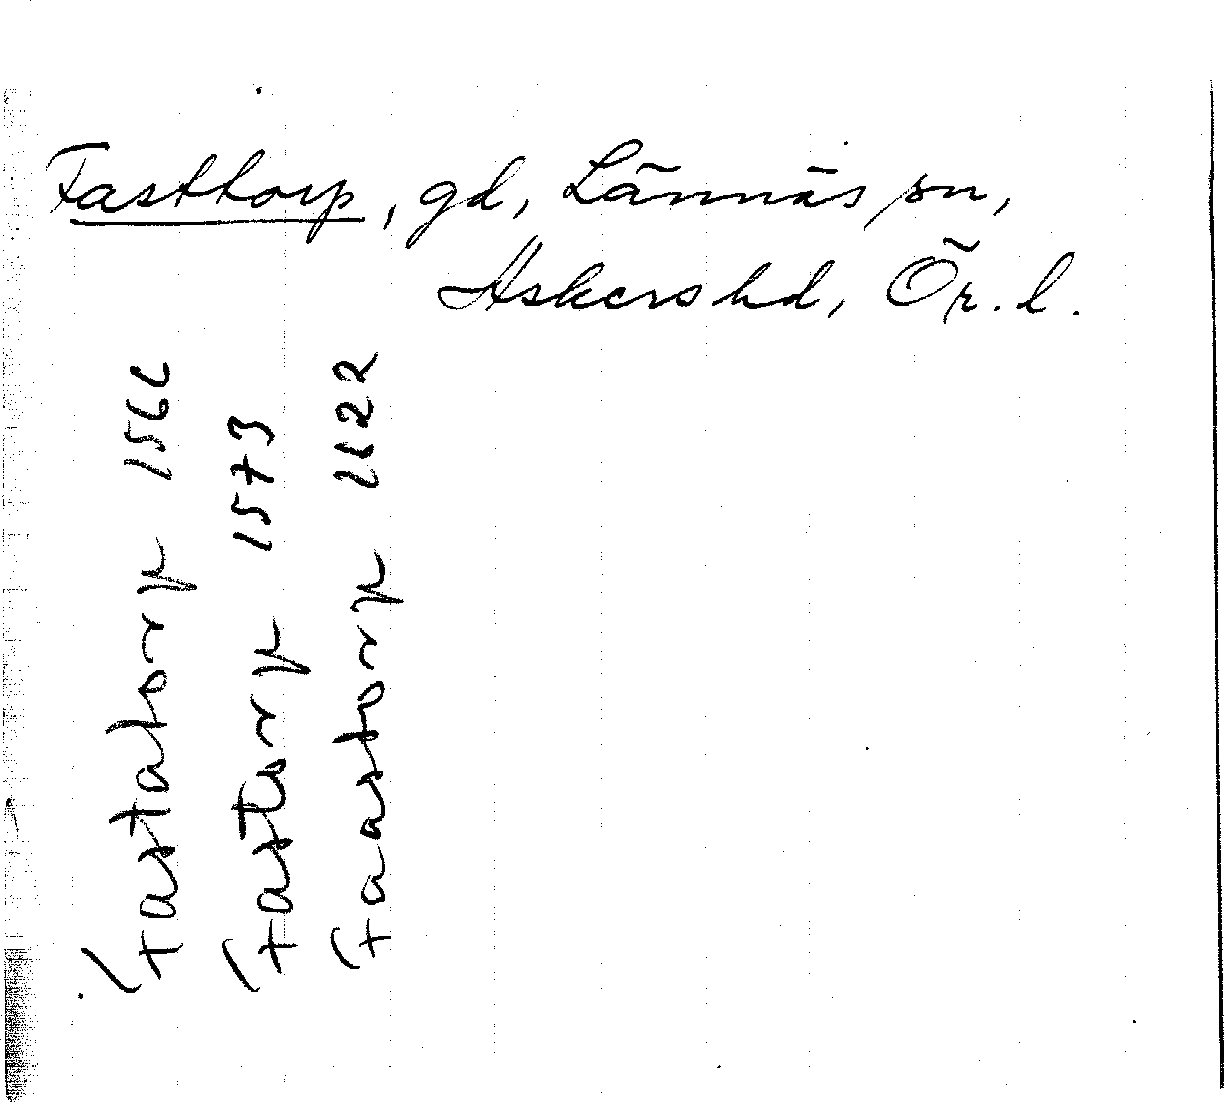 Fasttorp, gd, Lännäs sn,
Askers hd, Ör. l.
Fastatorp 1566
Fastorp 1573
Faastorp 1622